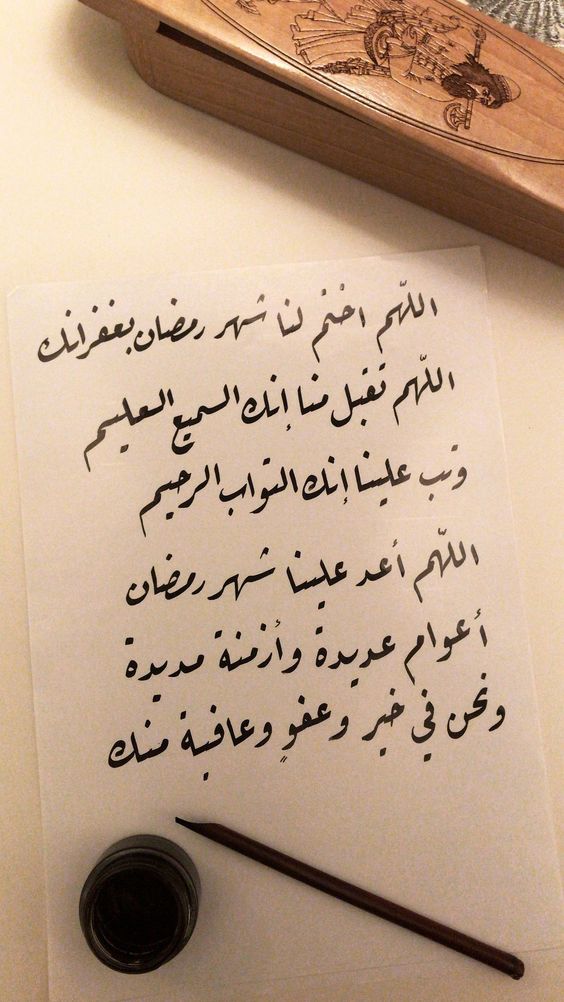 اللّهم اخْتم لنا شهر رمضان بغفرانك
اللّهم تقبل منا إنك السميع العليم
وتب علينا إنك التواب الرحيم
اللّهم أعد علينا شهر رمضان
أعوام عديدة وأزمنة مديدة
ونحن في خير وعفوٍ وعافية منك